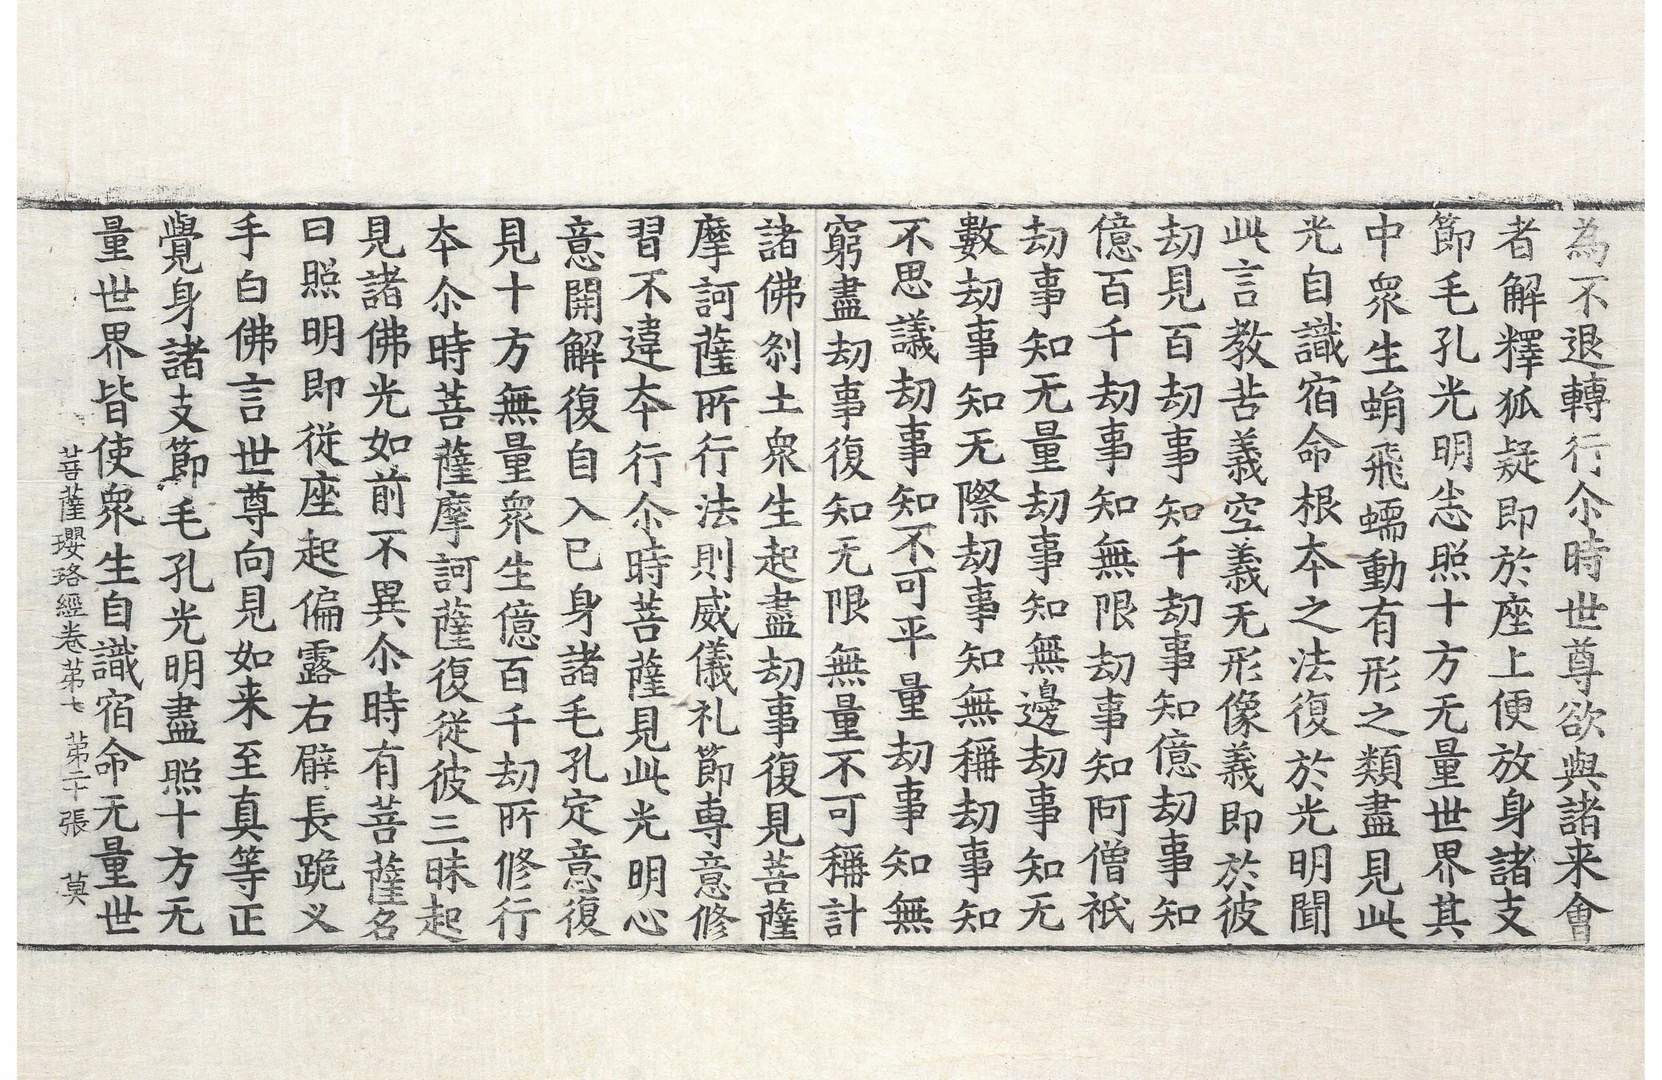 為不退轉行尒時世尊欲與諸来會
者解釋狐疑即於座上便放身諸支
節毛孔光明悉照十方无量世界其
中衆生蜎飛蠕動有形之類盡見此
光自識宿命根本之法復於光明聞
此言教苦義空義无形像義即於彼
劫見百劫事知千劫事知億劫事知
億百千劫事知無限劫事知阿僧祇
劫事知无量劫事知無邊劫事知无
數劫事知无際劫事知無稱劫事知
不思議劫事知不可平量劫事知無
窮盡劫事復知无限無量不可稱計
諸佛刹土衆生起盡劫事復見菩薩
摩訶薩所行法則威儀礼節専意修
習不違夲行尒時菩薩見此光明心
意開解復自入已身諸毛孔定意復
見十方無量衆生億百千劫所修行
夲尒時菩薩摩訶薩復従彼三昧起
見諸佛光如前不異尒時有菩薩名
曰照明即従座起偏露右臂長跪义
手白佛言世尊向見如来至真等正
覺身諸支節毛孔光明盡照十方无
量世界皆使衆生自識宿命无量世
菩薩瓔珞經卷苐七 苐二十張 莫